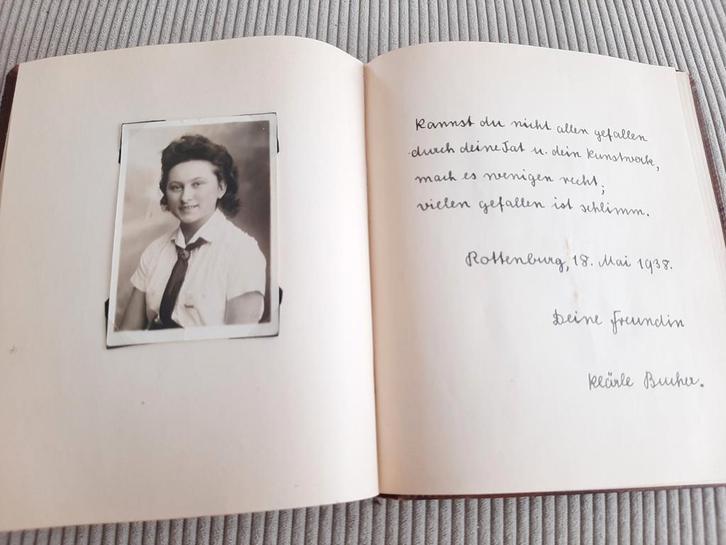 Kannst du nicht allen gefallen
durch deine Tat u. dein Kunstwerk,
mach es wenigen recht;
vielen gefallen ist schlimm.
Rottenburg, 18. Mai 1938.
Deine Freundin
Klärle Bucher.